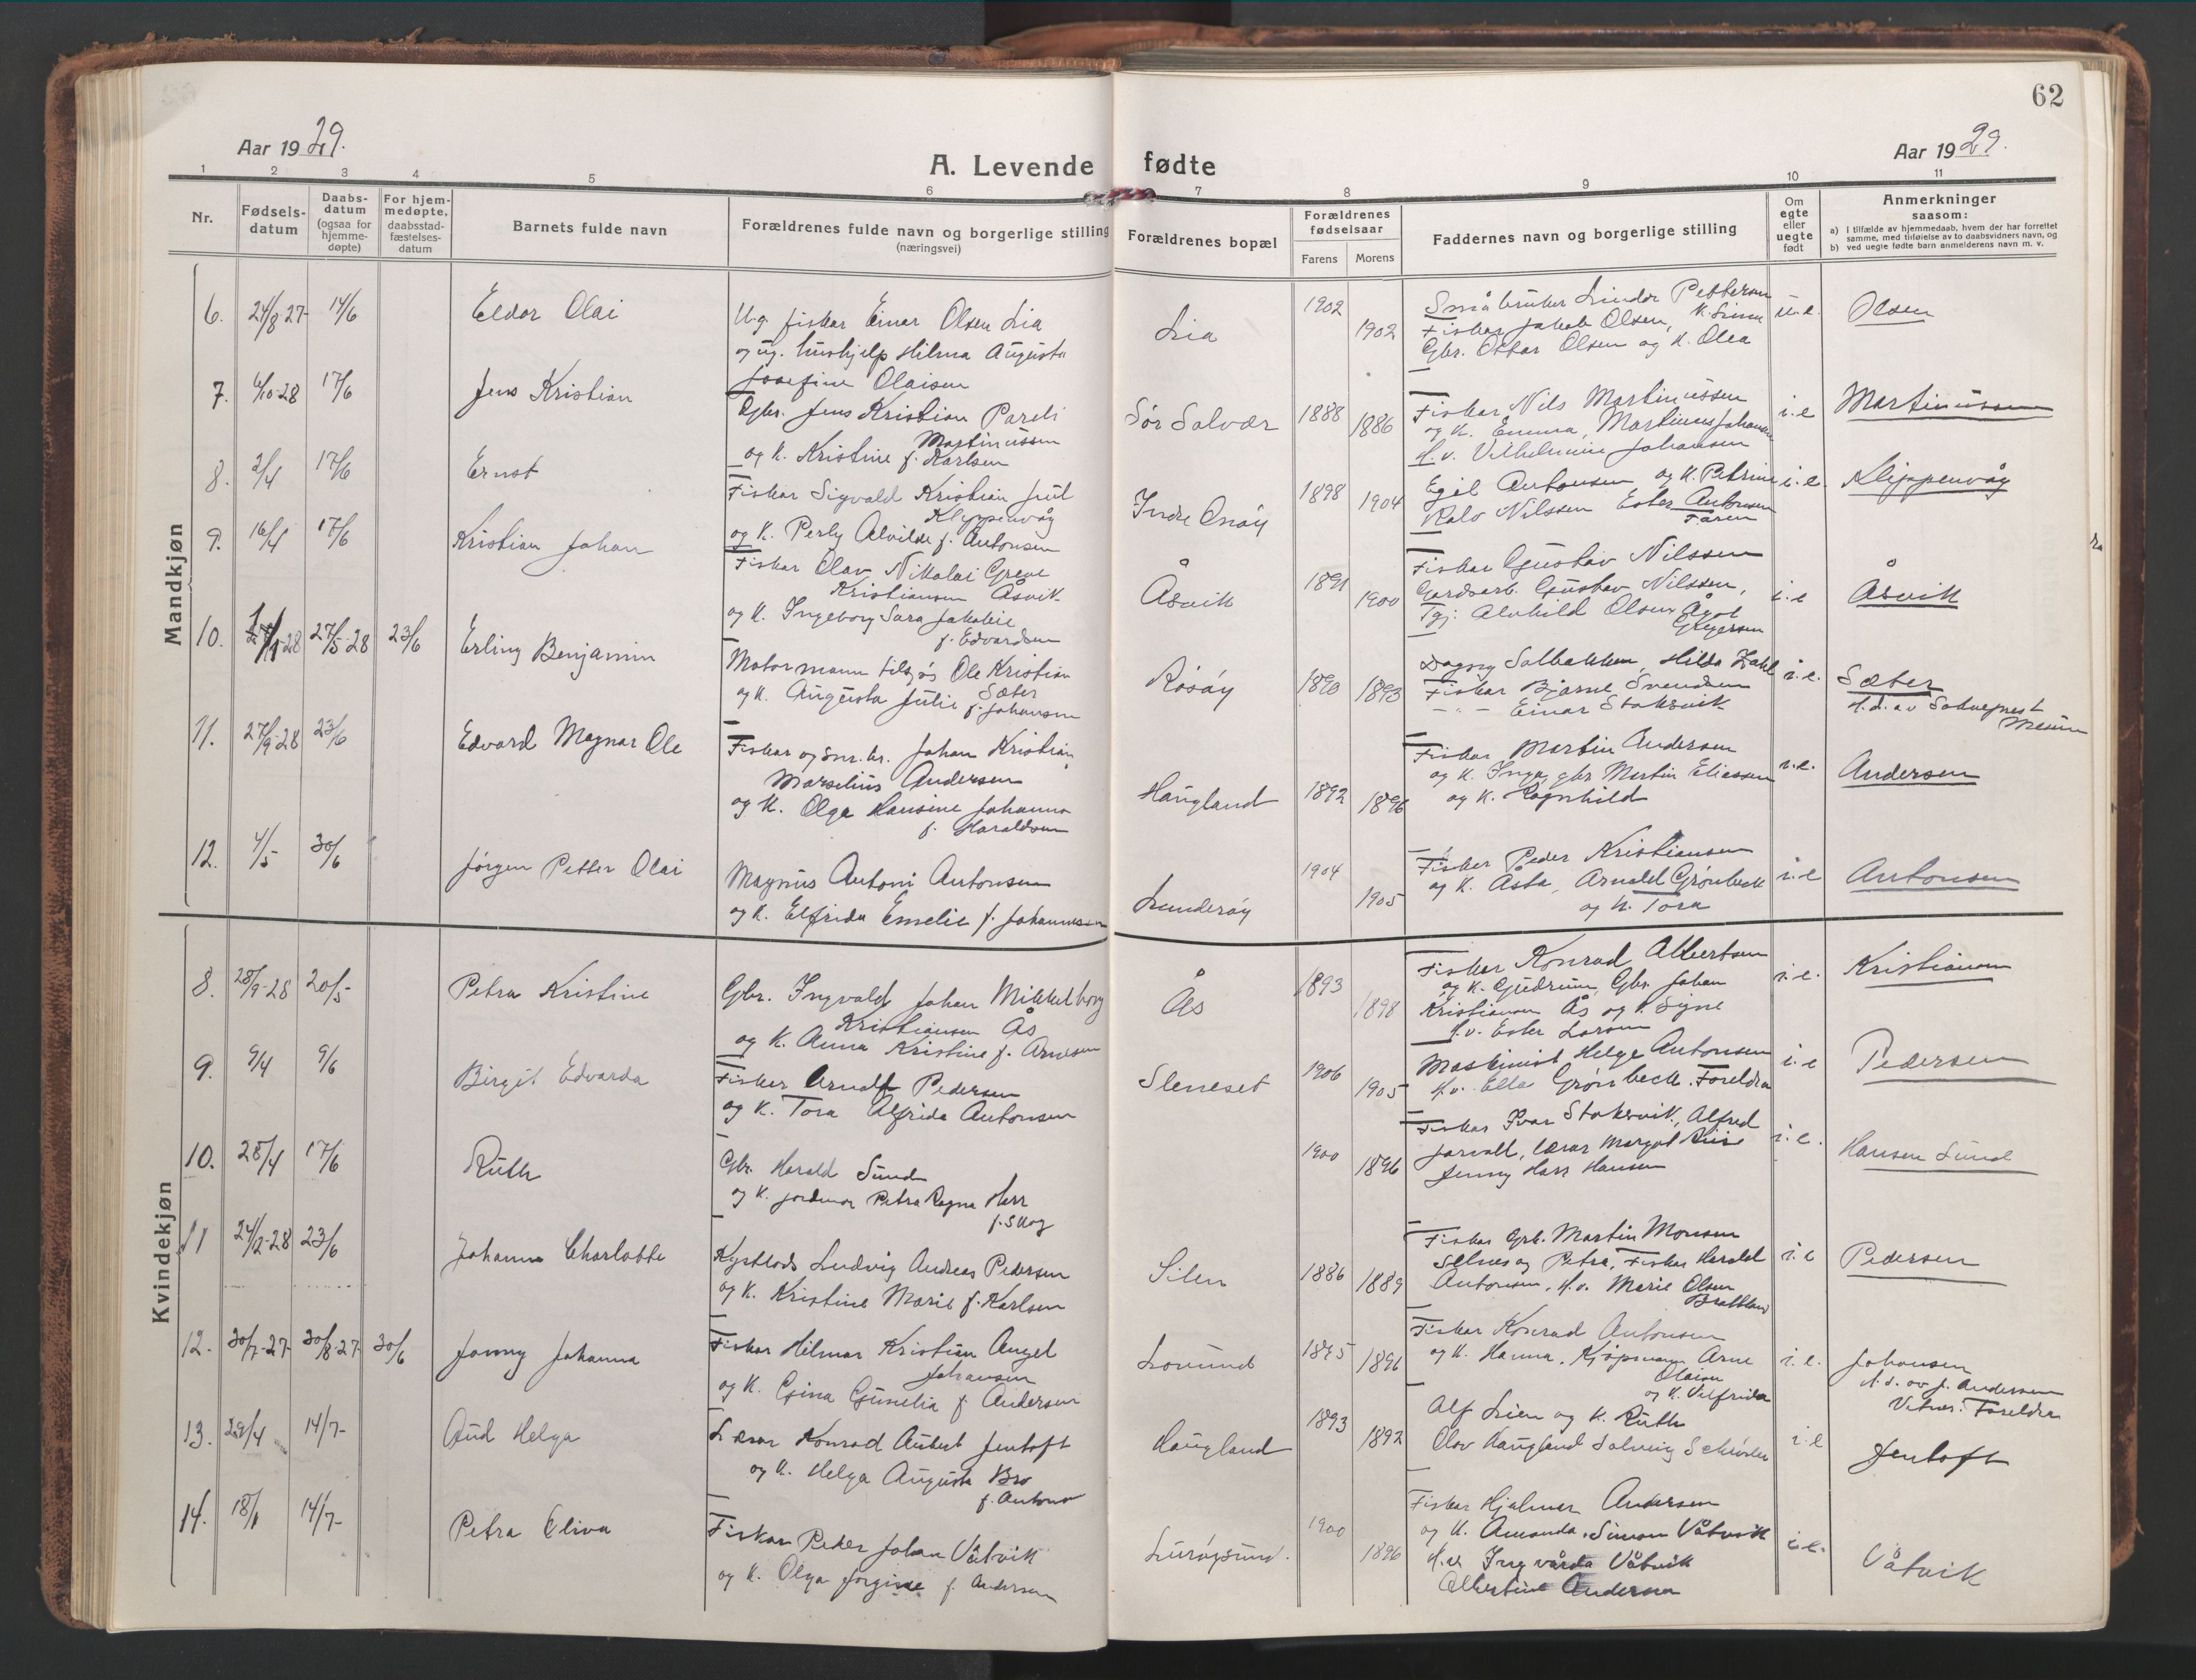 62
Aar 1929.
A. Levende fødte
Aar 1929.
1 2 3 4 5 6 7 8 9 10 11
Nr.
Fødselsdatum
Daabsdatum (ogsaa for hjemmedøpte)
For hjemmedøpte, daabsstadfæstelsesdatum
Barnets fulde navn
Forældrenes fulde navn og borgerlige stilling
(næringsvei)
Forældrenes bopæl
Forældrenes fødselsaar
Farens Morens
Faddernes navn og borgerlige stilling
Om egte eller uegte født
Anmerkninger
saasom:
a) i tilfælde av hjemmedaab, hvem der har forrettet samme, med tilføielse av to daabsvidners navn, og
b) ved uegte fødte barn anmelderens navn m. v.
Mandkjøn
6. 24/8-27 14/6 Eldor Olai
Ug. fisker Einar Olsen Lia
og ug. hushjelp Hilma Augusta
Josefine Olaisen
Lia 1902 1902
Småbruker Lindor Pettersen
Fisker Jakob Olsen,
Gbr. Ottar Olsen og K. Olea
u.e. Olsen
7. 4/10-28 17/6 Jens Kristian
Gbr. Jens Kristian Pareli
Martinussen
og K. Kristine f. Karlsen
Sør Solvær 1888 1886
Fisker Nils Martinussen
og K. Emma, Martinus Johansen
H.v. Vilhelmine Johansen
i.e Martinussen
8. 2/4 17/6 Ernst
Fisker Sigvald Kristian Juul
Kleppenvåg
og K. Perly Alvilde f. Antonsen
Indre Onøy 1898 1904
Egil Antonsen og K. Petrine
Ralv Nilssen Ester Antonsen
Faren
i.e. Klippenvåg
9. 16/4 17/6 Kristian Johan
Fisker Olav Nikolai Greve
Kristiansen Åsvik
og K. Ingeborg Sara Jakobie
f. Edvardsen
Åsvik 1891 1900
Fisker Gustav Nilssen
Gardsarb. Gustav Nilssen,
Tgj. Alvhild Olsen Ågot
Gregersen
i.e Åsvik
10. 27/5-28 23/6 Erling Benjamin
Motormann tilsjøs Ole Kristian
Sæter
og K. Augusta Julie f. Johansen
Rosøy 1890 1893
Dagny Solbakken, Hilda Zahl
Fisker Bjarne Svendsen
- " - Einar Stokvik
i.e. Sæter
H.d. av Sokneprest
11. 27/9-28 23/6 Edvard Magnar Ole
Fisker og sm.br. Johan Kristian
Marselius Andersen
og K. Olga Hansine Johanna
f. Haraldsen
Haugland 1892 1896
Fisker Martin Andersen
og K. Inga, gbr Martin Eliassen
og K. Ragnhild
i.e. Andersen
12. 4/5 30/6 Jørgen Petter Olai
Magnus Antoni Antonsen
og K. Elfrida Emelie f. Johannessen
Lunderøy 1904 1905
Fisker Peder Kristiansen
og K. Åsta, Arnold Grønbeck
og K. Tora
i.e Antonsen
Kvindekjøn
8. 28/9-28 20/5- Petra Kristine
Gbr. Ingvald Johan Mikkelborg
Kristiansen Ås
og K. Anna Kristine f. Arnesen
Ås 1893 1898
Fisker Konrad Albertsen
og K. Gudrun, Gbr. Johan
Kristiansen Ås og K. Signe
H.v. Ester Larsen
i.e. Kristiansen
9. 9/4 9/6 Birgit Edvarda
Fisker Arnulf Pedersen
og K. Tora Alfrida Antonsen
Sleneset 1906 1905
Maskinist Helge Antonsen
H.v. Ella Grønbeck. Foreldra
i.e Pedersen
10. 28/4 17/6 Ruth
Gbr. Harald Sund
og K. jordmor Petra Ragna Harr
f. Skog
1900 1896
Fisker Ivar Stoksvik, Alfred
Jarvoll, lærar Margot
Jenny Harr Hansen
i.e. Hansen Sund
11 24/12-28 23/6 Johanna Charlotte
Kystlods Ludvig Andreas Pedersen
og K. Kristine Marie f. Karlsen
Silen 1886 1889
Fisker Gbr. Martin Monsen
Selnes og Petra, Fisker Harald
Antonsen, H.v. Marie Olsen
Brattland
i.e Pedersen
12. 30/7-27 30/8-27 30/6 Jonny Johanna
Fisker Hilmar Kristian Angel
Johansen
og K. Gina Gunelia f Andersen
Lovund 1895 1896
Fisker Konrad Antonsen
og K. Hanna, Kjøpmann Arne
Olaisen
og K. Vilfrida
i.e. Johansen
H.d. av J. Andersen
Vitner: Foreldra
13. 29/4 14/7- Aud Helga
Lærar Konrad Aubert Jentoft
og K. Helga Augusta Bro
f. Antons
Haugland 1893 1892
Alf Lien og K. Ruth
Olav Haugland Solveig Schrøder
i.e Jentoft
14. 18/1 14/7- Petra Oliva
Fisker Peder Johan Våtvik
og K. Olga Jorgine f. Andersen
Lurøysund. 1900 1896
Fisker Hjalmer Andersen
og K. Amanda, Simon Våtvik
H.v. Ingvarda Våtvik
Albertine Andersen
i.e. Våtvik